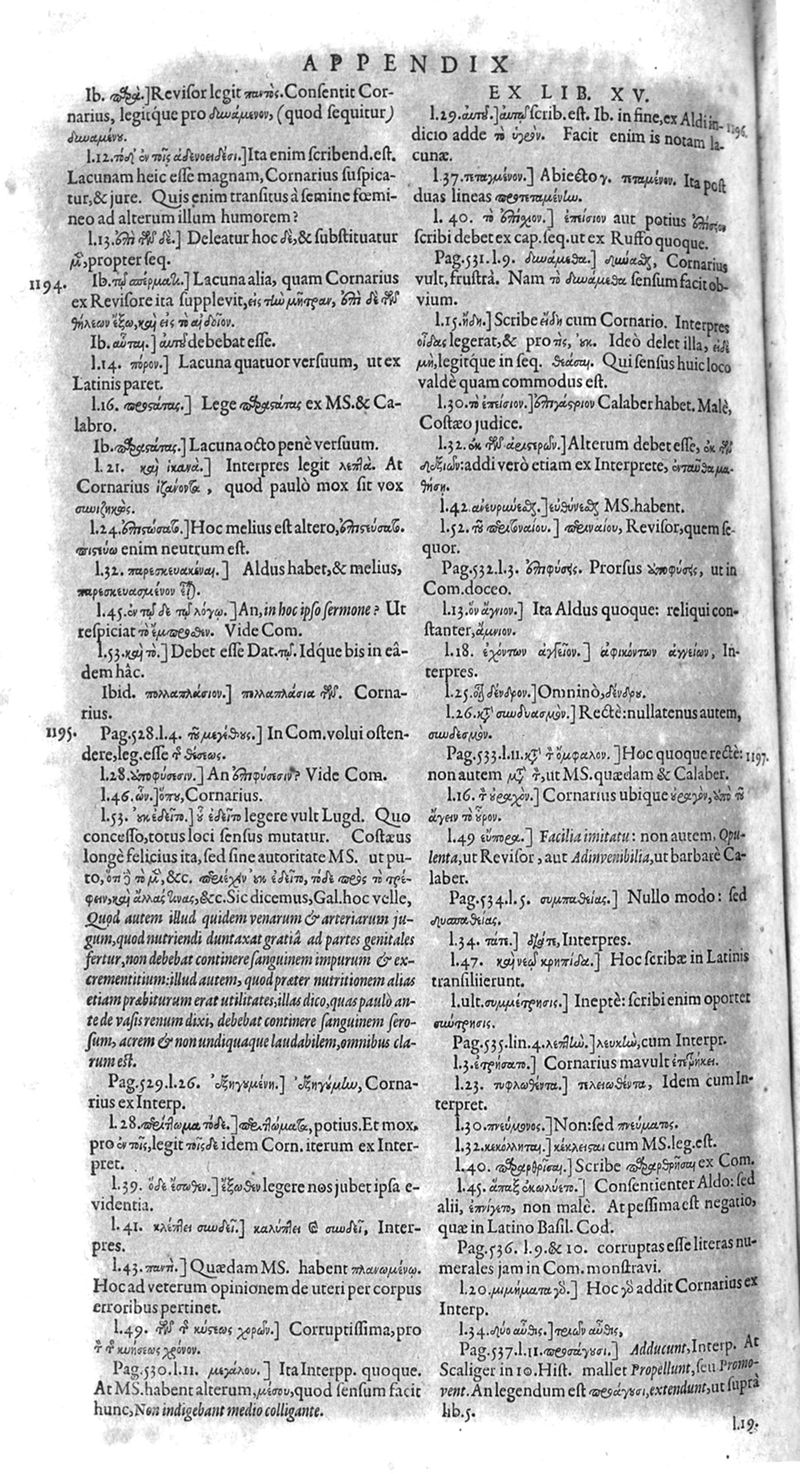 APPENDIX
Ib. παρὰ.] Revisor legit παντὸς. Consentit Cor-
narius, legitque pro δυνάμενον, (quod sequitur)
δυναμένου.
l.12. τόδε ἐν τοῖς ἀδενοειδέσι.] Ita enim scribend. est.
Lacunam heic esse magnam, Cornarius suspica-
tur, & jure. Quis enim transitus à semine fœmi-
neo ad alterum illum humorem?
l.13. ἐπὶ δὲ.] Deleatur hoc δὲ, & substituatur
propter seq.
1194. Ib. τῷ σπέρματι.] Lacuna alia, quam Cornarius
ex Revisore ita supplevit, εἰς τὴν μήτραν, ἐπὶ δὲ τῶν
θηλειῶν ἔξω, καὶ εἰς τὸ αἰδοῖον.
Ib. αὕτη.] debebat esse.
l.14. πόρον.] Lacuna quatuor versuum, ut ex
Latinis paret.
l.16. Lege παραστάτας ex MS. & Ca-
labro.
Ib. παραστάτας.] Lacuna octo penè versuum.
l.21. καὶ ἱκανὰ.] Interpres legit λεπτὰ. At
Cornarius ἱζάνοντα, quod paulò mox sit vox
συνιζηκὸς.
l.24. Hoc melius est altero,
πιστεύω enim neutrum est.
l.32. παρεσκευακέναι.] Aldus habet, & melius,
παρεσκευασμένον εἶναι.
l.45. ἐν τῷδε τῷ λόγῳ.] An, in hoc ipso sermone? Ut
respiciat τὸ ἔμπροσθεν. Vide Com.
l.53. καὶ τὸ.] Debet esse Dat. τῷ. Idque bis in eâ-
dem hâc.
Ibid. πολλαπλάσιον.] πολλαπλάσια τῶν. Corna-
rius.
1195. Pag.528.l.4. τοῦ μεγέθους.] In Com. volui osten-
dere, leg. esse τῆς θέσεως.
l.28. ὑποφύσεσιν.] An ἐπιφύσεσιν? Vide Com.
l.46. ὧν.] ὅπου, Cornarius.
l.53. οὐκ ἐδεῖτο.] οὗ ἐδεῖτο legere vult Lugd. Quo
concesso, totus loci sensus mutatur. Costæus
longè felicius ita, sed sine autoritate MS. ut pu-
to, &c. περιέχειν οὐκ ἐδεῖτο, τόδε πρὸς τὸ τρέ-
φειν, καὶ ἄλλας τινας, &c. Sic dicemus, Gal. hoc velle,
Quod autem illud quidem venarum & arteriarum ju-
gum, quod nutriendi duntaxat gratiâ ad partes genitales
fertur, non debebat continere sanguinem impurum & ex-
crementitium: illud autem, quod præter nutritionem alias
etiam præbiturum erat utilitates, illas dico, quas paulò an-
te de vasis renum dixi, debebat continere sanguinem sero-
sum, acrem & non undiquaque laudabilem, omnibus cla-
rum est.
Pag.529.l.26. ἐξηγουμένη.] ἐξηγοῦμαι, Corna-
rius ex Interp.
l.28. potius. Et mox,
pro ἐν τοῖς, legit τοῖς δὲ idem Corn. iterum ex Inter-
pret.
l.39. ὅδε ἔσωθεν.] ἔξωθεν legere nos jubet ipsa e-
videntia.
l.41. κλέπτει συνδεῖ.] καλύπτει καὶ συνδεῖ, Inter-
pres.
l.43. παντὴ.] Quædam MS. habent πλανωμένῳ.
Hoc ad veterum opinionem de uteri per corpus
erroribus pertinet.
l.49. τῶν τῆς κύστεως χορῶν.] Corruptissima, pro
τὸν τῆς κυήσεως χρόνον.
Pag.530.l.11. μεγάλου.] Ita Interpp. quoque.
At MS. habent alterum, μέσου, quod sensum facit
hunc, Non indigebant medio colligante.
EX LIB. XV.
l.29. αὐτοῦ.] αὐτῷ scrib. est. Ib. in fine, ex Aldi in- 1196.
dicio adde τὸ ὑγρὸν. Facit enim is notam la-
cunæ.
l.37. πεταγμένον.] Abiecto γ. πεταμένον. Ita post
duas lineas προπεταμένην.
l.40. ἐπίσιον aut potius ἐπίσειον
scribi debet ex cap. seq. ut ex Ruffo quoque.
Pag.531.l.9. δυνάμεθα.] Cornarius
vult, frustrà. Nam τὸ δυνάμεθα sensum facit ob-
vium.
l.15. ἤδη.] Scribe εἴδη cum Cornario. Interpres
οἶδας legerat, & pro τὶς, οὐκ. Ideò delet illa, εἰδὲ
μὴ, legitque in seq. θεάσῃ. Qui sensus huic loco
valdè quam commodus est.
l.30. τὸ ἐπίσιον.] ἐπιγάστριον Calaber habet. Malè,
Costæo judice.
l.32. ἐκ τῶν ἀριστερῶν.] Alterum debet esse, ἐκ τῶν
δεξιῶν: addi verò etiam ex Interprete, ἐνταῦθα μα-
θήσῃ.
l.42. ἀνευρύνεσθαι.] εὐθύνεσθαι MS. habent.
l.52. Revisor, quem se-
quor.
Pag.532.l.3. ἐπιφύσις. Prorsus ὑποφύσις, ut in
Com. doceo.
l.13. ὃν ἄγνιον.] Ita Aldus quoque: reliqui con-
stanter, ἄμνιον.
l.18. ἐχόντων ἀγγεῖον.] ἀφικόντων ἀγγείων, In-
terpres.
l.25. δένδρον.] Omninò, δένδρου.
l.26. κατὰ συνδυασμὸν.] Rectè: nullatenus autem,
συνδεσμὸν.
Pag.533.l.11. κατὰ τὸν ὀμφαλον.] Hoc quoque rectè: 1197.
non autem μετὰ τὸν, ut MS. quædam & Calaber.
l.16. τὸν οὐραχὸν.] Cornarius ubique οὐραχὸν, ἀπὸ τοῦ
ἄγειν τὸ οὖρον.
l.49 εὔπορα.] Facilia imitatu: non autem, Opu-
lenta, ut Revisor, aut Adinvenibilia, ut barbarè Ca-
laber.
Pag.534.l.5. συμπαθείας.] Nullo modo: sed
δυσπαθείας.
l.34. τάτε.] Interpres.
l.47. κρηπῖδα.] Hoc scribæ in Latinis
transiliierunt.
l.ult. συμμέτρησις.] Ineptè: scribi enim oportet
συντρησις.
Pag.535.lin.4. λεπτὴν.] λευκὴν, cum Interpr.
l.3. ἐτρήσατο.] Cornarius mavult
l.23. τυφλωθέντα.] τελειωθέντα, Idem cum In-
terpret.
l.30. πνεύμονος.] Non: sed πνεύματος.
l.32. κεκόλληται.] κέκλεισται cum MS. leg. est.
l.40. Scribe ex Com.
l.45. ἅπαξ ἐκωλύετο.] Consentienter Aldo: sed
alii, ἐπνίγετο, non malè. At pessima est negatio,
quæ in Latino Basil. Cod.
Pag.536. l.9. & 10. corruptas esse literas nu-
merales jam in Com. monstravi.
l.20. μιμήματα γὰρ.] Hoc γὰρ addit Cornarius ex
Interp.
l.34. δύο αὖθις.] τριῶν αὖθις,
Pag.537.l.11. προσάγουσι.] Adducunt, Interp. At
Scaliger in 10. Hist. mallet Propellunt, seu Promo-
vent. An legendum est προάγουσι, extendunt, ut suprà
lib.5.
l.19.